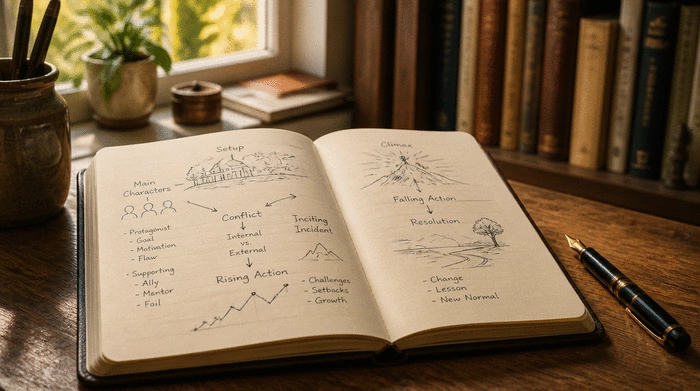 Setup
Main
Characters
- Protagonist
- Goal
- Motivation
- Flaw
- Supporting
- Ally
- Mentor
- Foil
Conflict
Internal
vs.
External
Inciting
Incident
Rising Action
- Challenges
- Setbacks
- Growth
Climax
Falling Action
Resolution
- Change
- Lesson
- New Normal